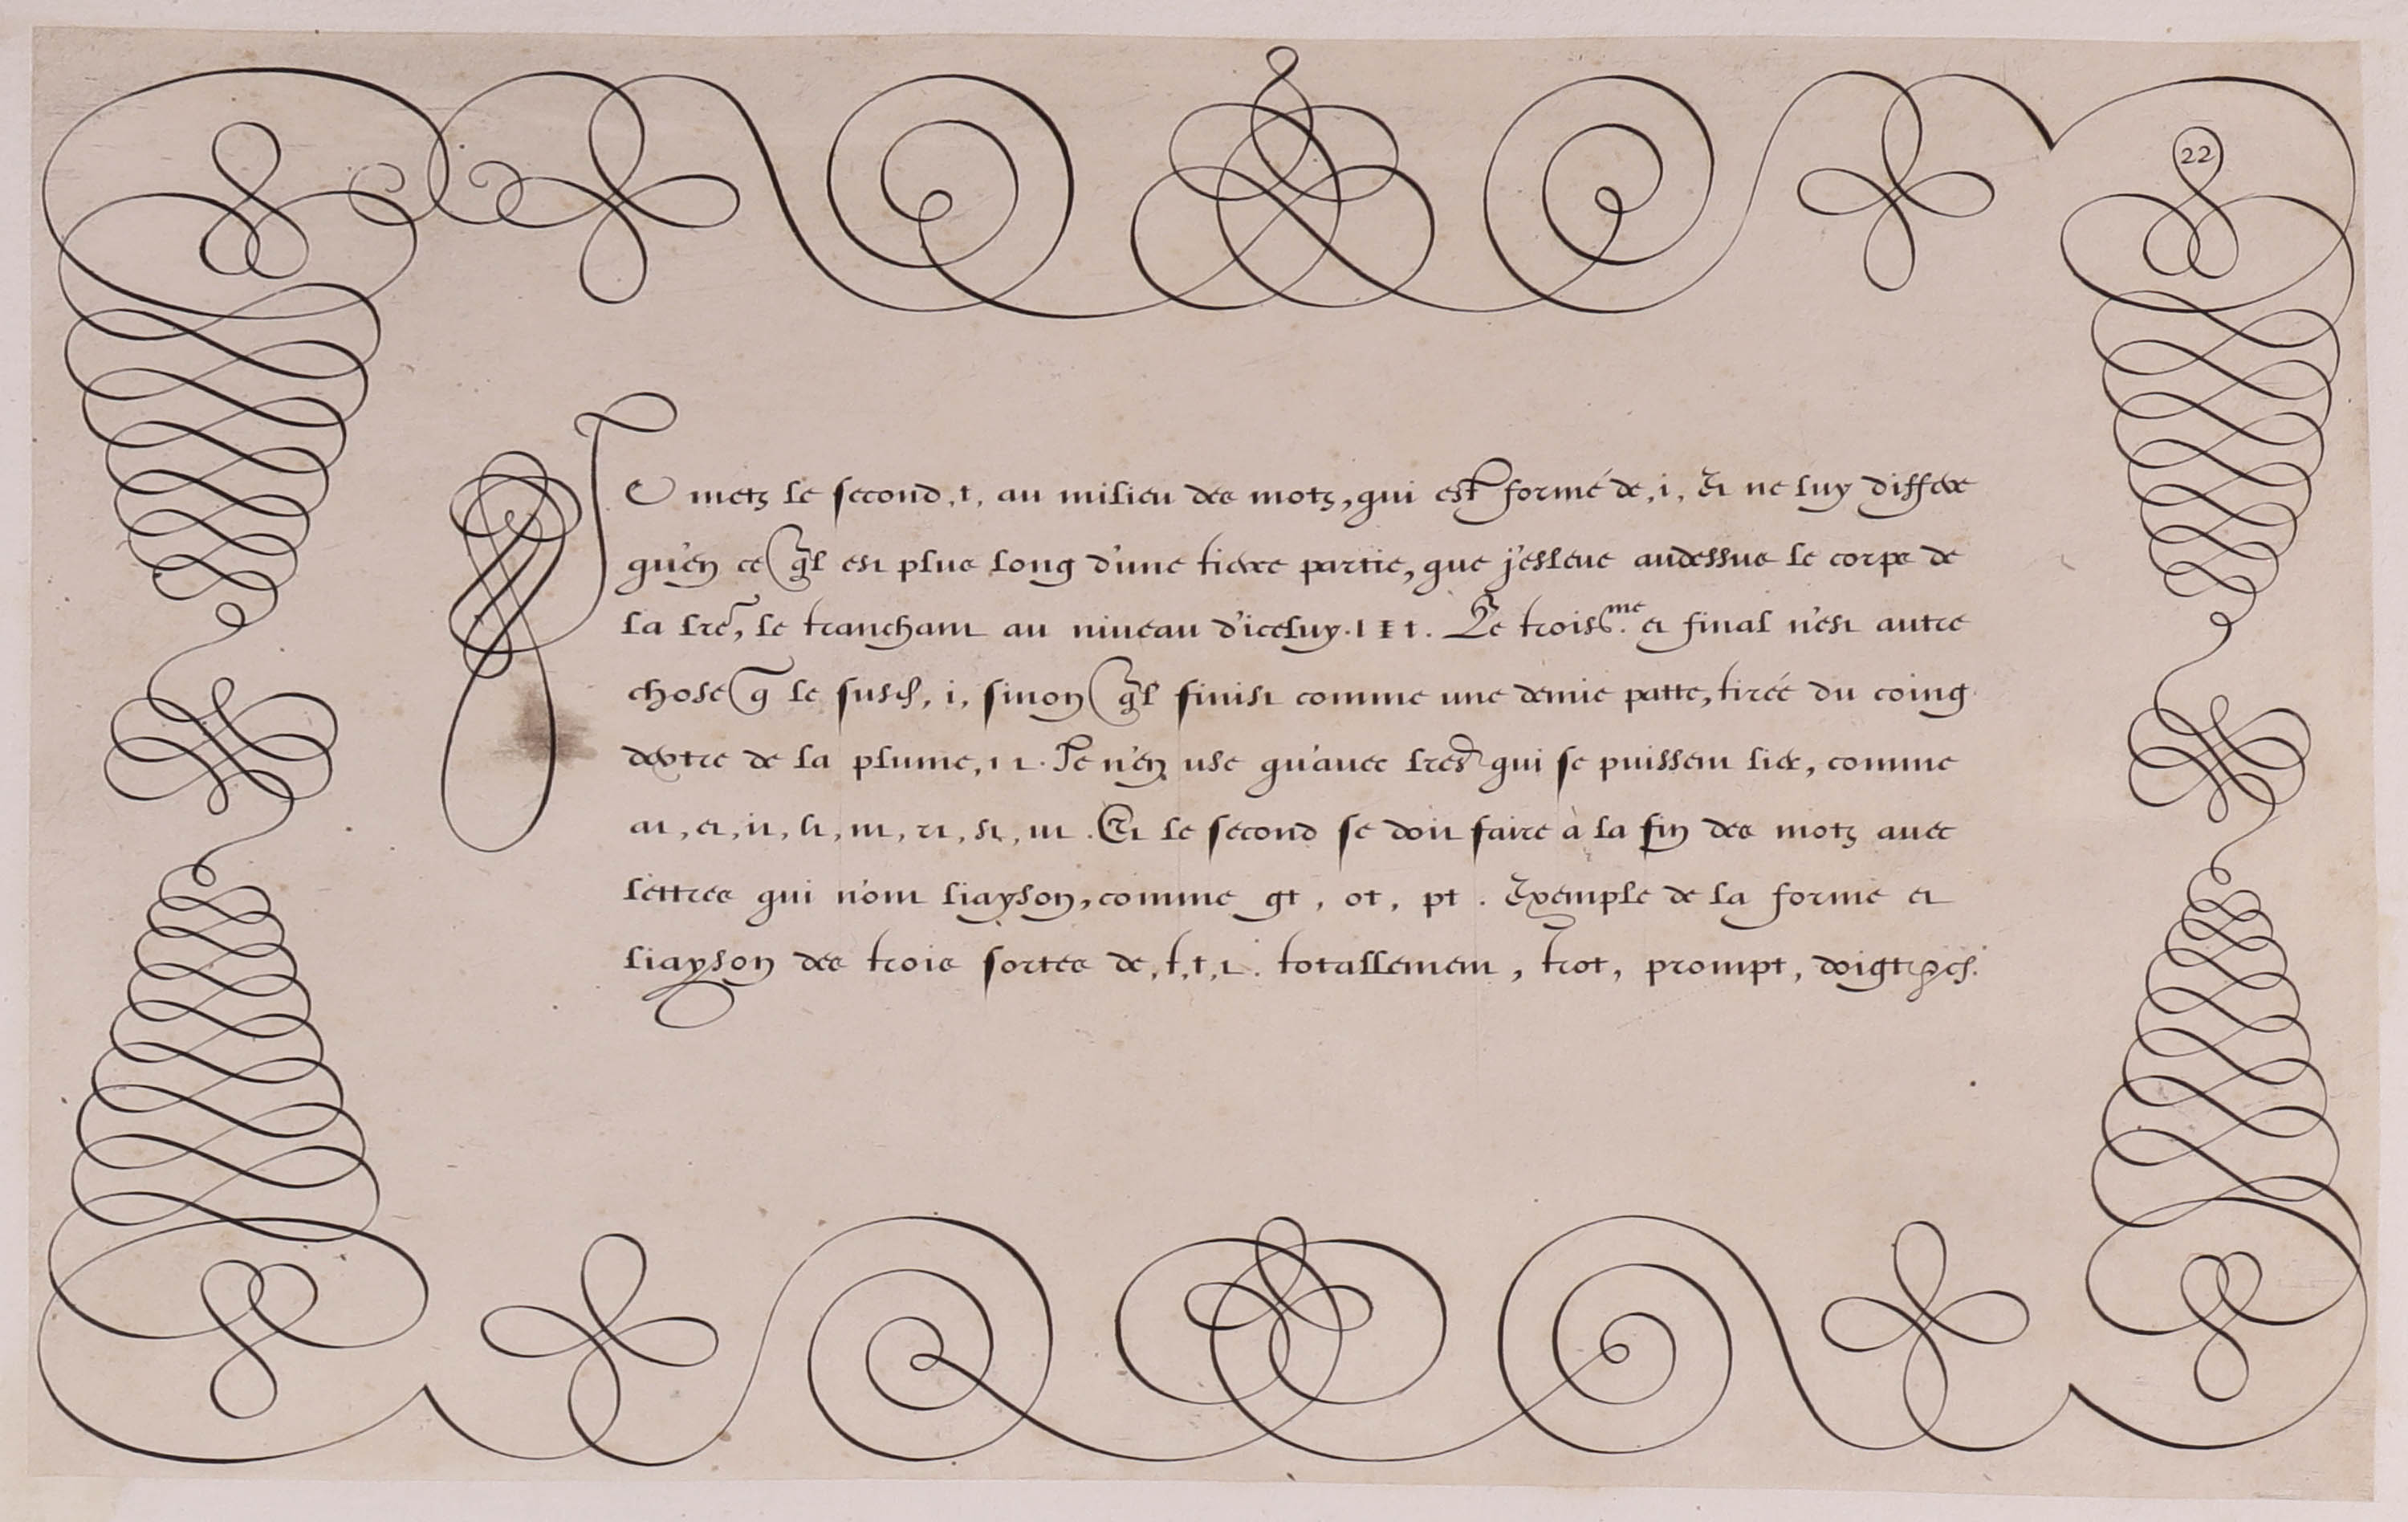 22
Je metz le second, t, au milieu des motz, qui est formé de, i, Et ne luy differe
qu'en ce ql est plus long d'une tierce partie, que j'esleve audessus le corps de
la lre, le tranchant au niveau d'iceluy. I I t. Le trois.me et final n'est autre
chose q le susd, i, sinon ql finist comme une demie patte, tireé du coing
dextre de la plume, ı t. Je n'en use qu'avec lres qui se puissent lier, comme
at, et, it, lt, nt, rt, st, ut. Et le second se doit faire à la fin des motz avec
lettres qui n'ont liayson, comme gt, ot, pt. Exemple de la forme et
liayson des trois sortes de, t, t, t. totallement, trot, prompt, doigt &c.